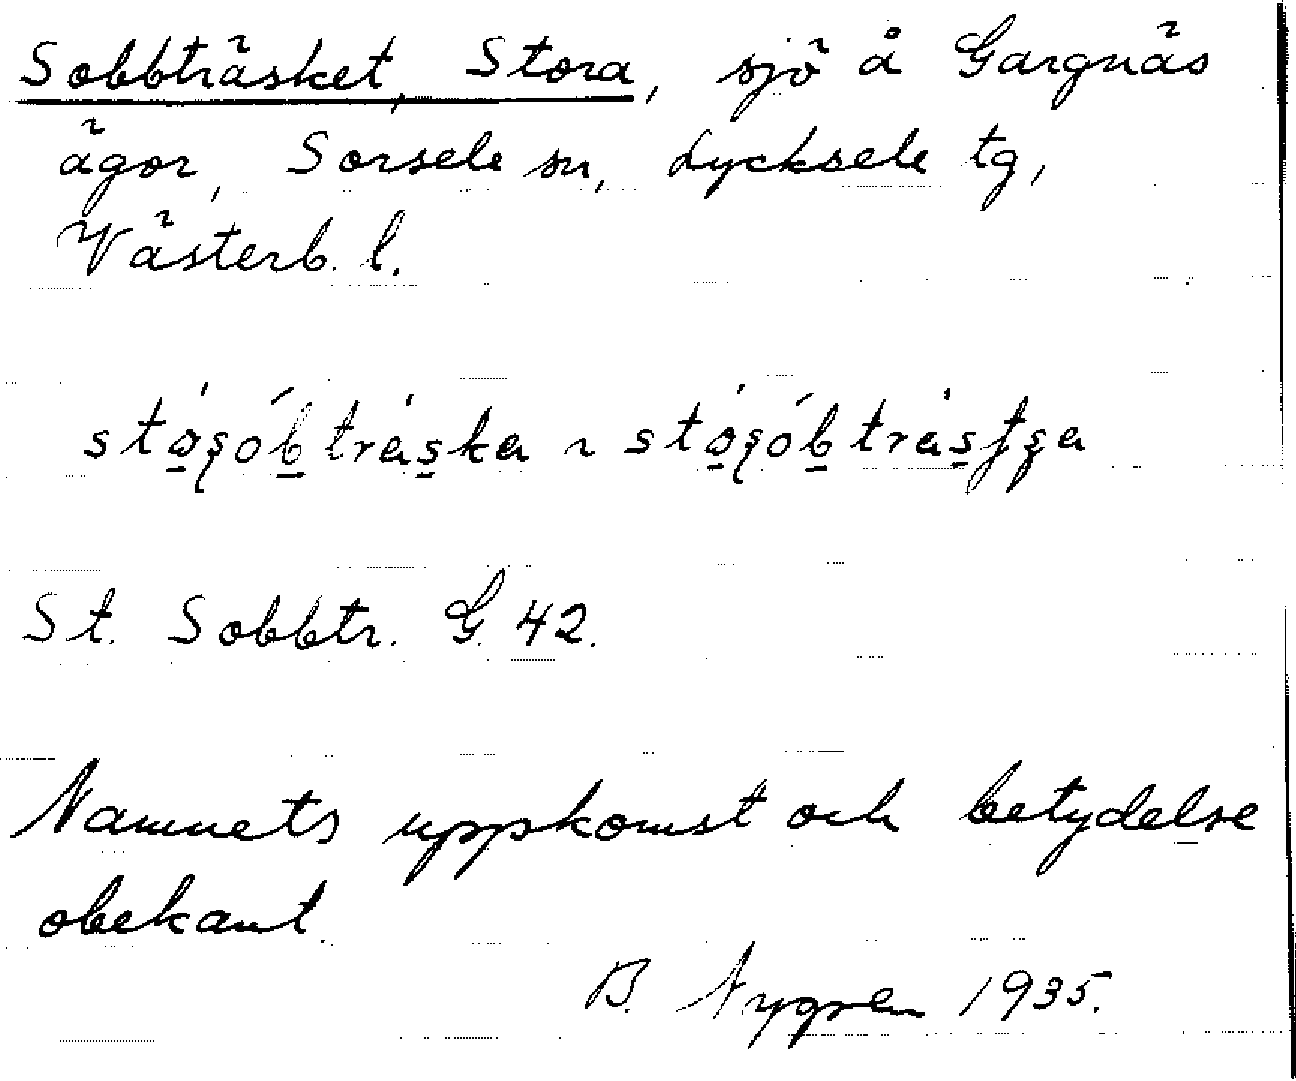 Sobbträsket, Stora, sjö å Gargnäs
ägor, Sorsele sn, Lycksele tg,
Västerb. l.
St. Sobbtr. G. 42.
Namnets uppkomst och betydelse
obekant.
B. Nygren 1935.